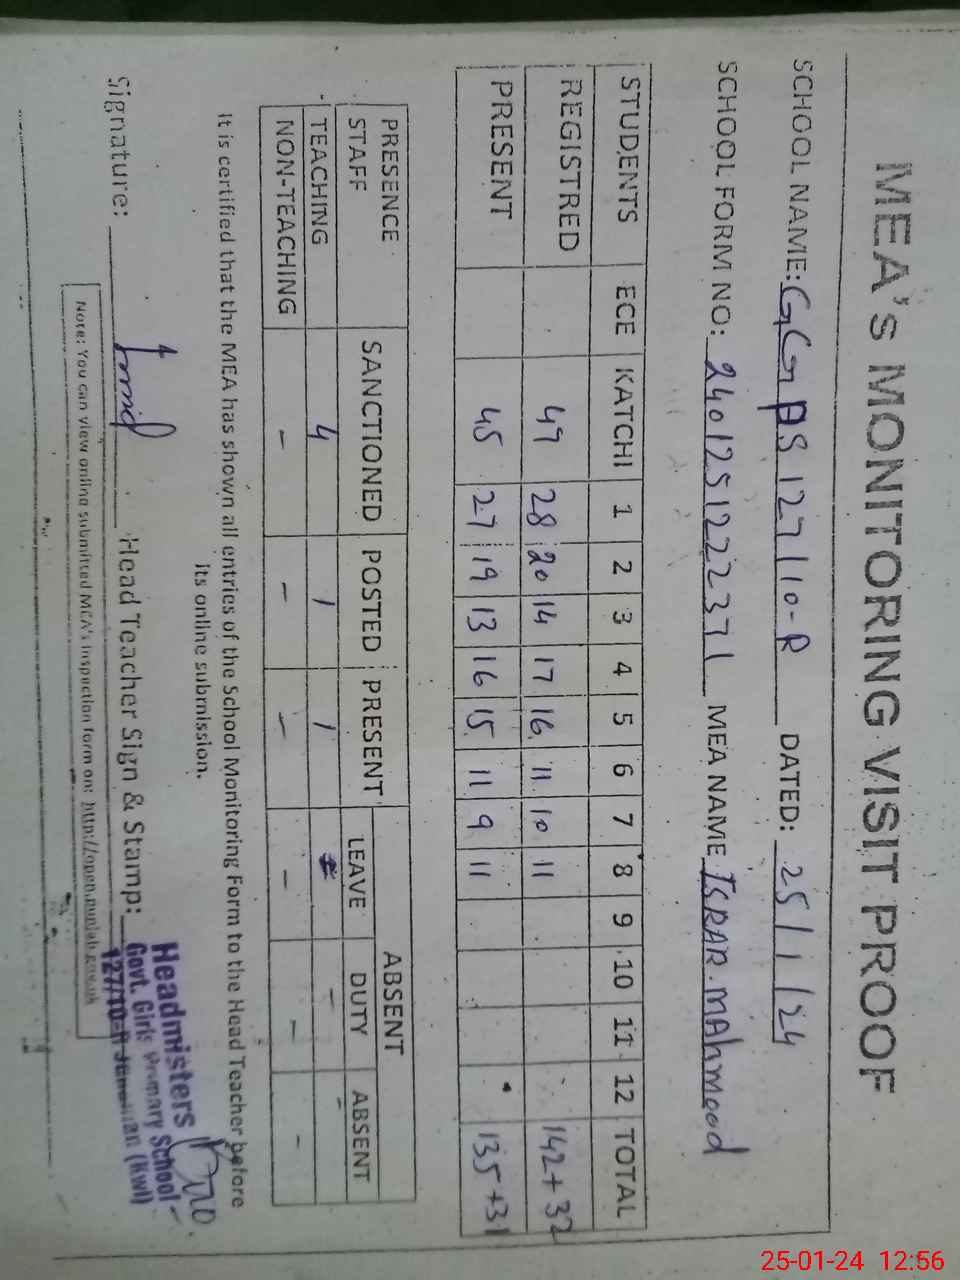 MEA's MONITORING VISIT PROOF
SCHOOL NAME: GGPS 127/10-R DATED: 25/1/24
SCHOOL FORM NO: 2401251222371 MEA NAME ISRAR.MAhmood
STUDENTS ECE KATCHI 1 2 3 4 5 6 7 8 9 10 11 12 TOTAL
REGISTRED 49 28 20 14 17 16 11 10 11 142+32
PRESENT 45 27 19 13 16 15 11 9 11 135+31
PRESENCE STAFF SANCTIONED POSTED PRESENT ABSENT
LEAVE DUTY ABSENT
TEACHING 4 1 1 - -
NON-TEACHING - - - - - -
It is certified that the MEA has shown all entries of the School Monitoring Form to the Head Teacher before
its online submission.
Signature: Head Teacher Sign & Stamp:
Headmisters
Govt. Girls Primary School
127/10-R (Kwl)
Note: You can view online submitted MEA's inspection form on: http://open.punjab.gov.pk
25-01-24 12:56